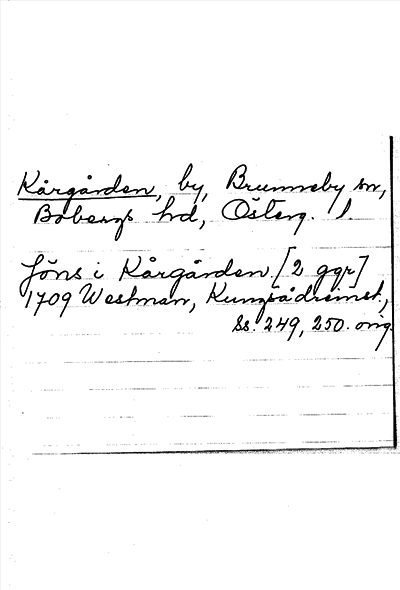 Kårgården, by, Brunneby sn,
Bobergs hd, Österg. l.
Jöns i Kårgården. [2 ggr]
1709 Westman, Kungsådreinst.,
Ss. 249, 250. orig.